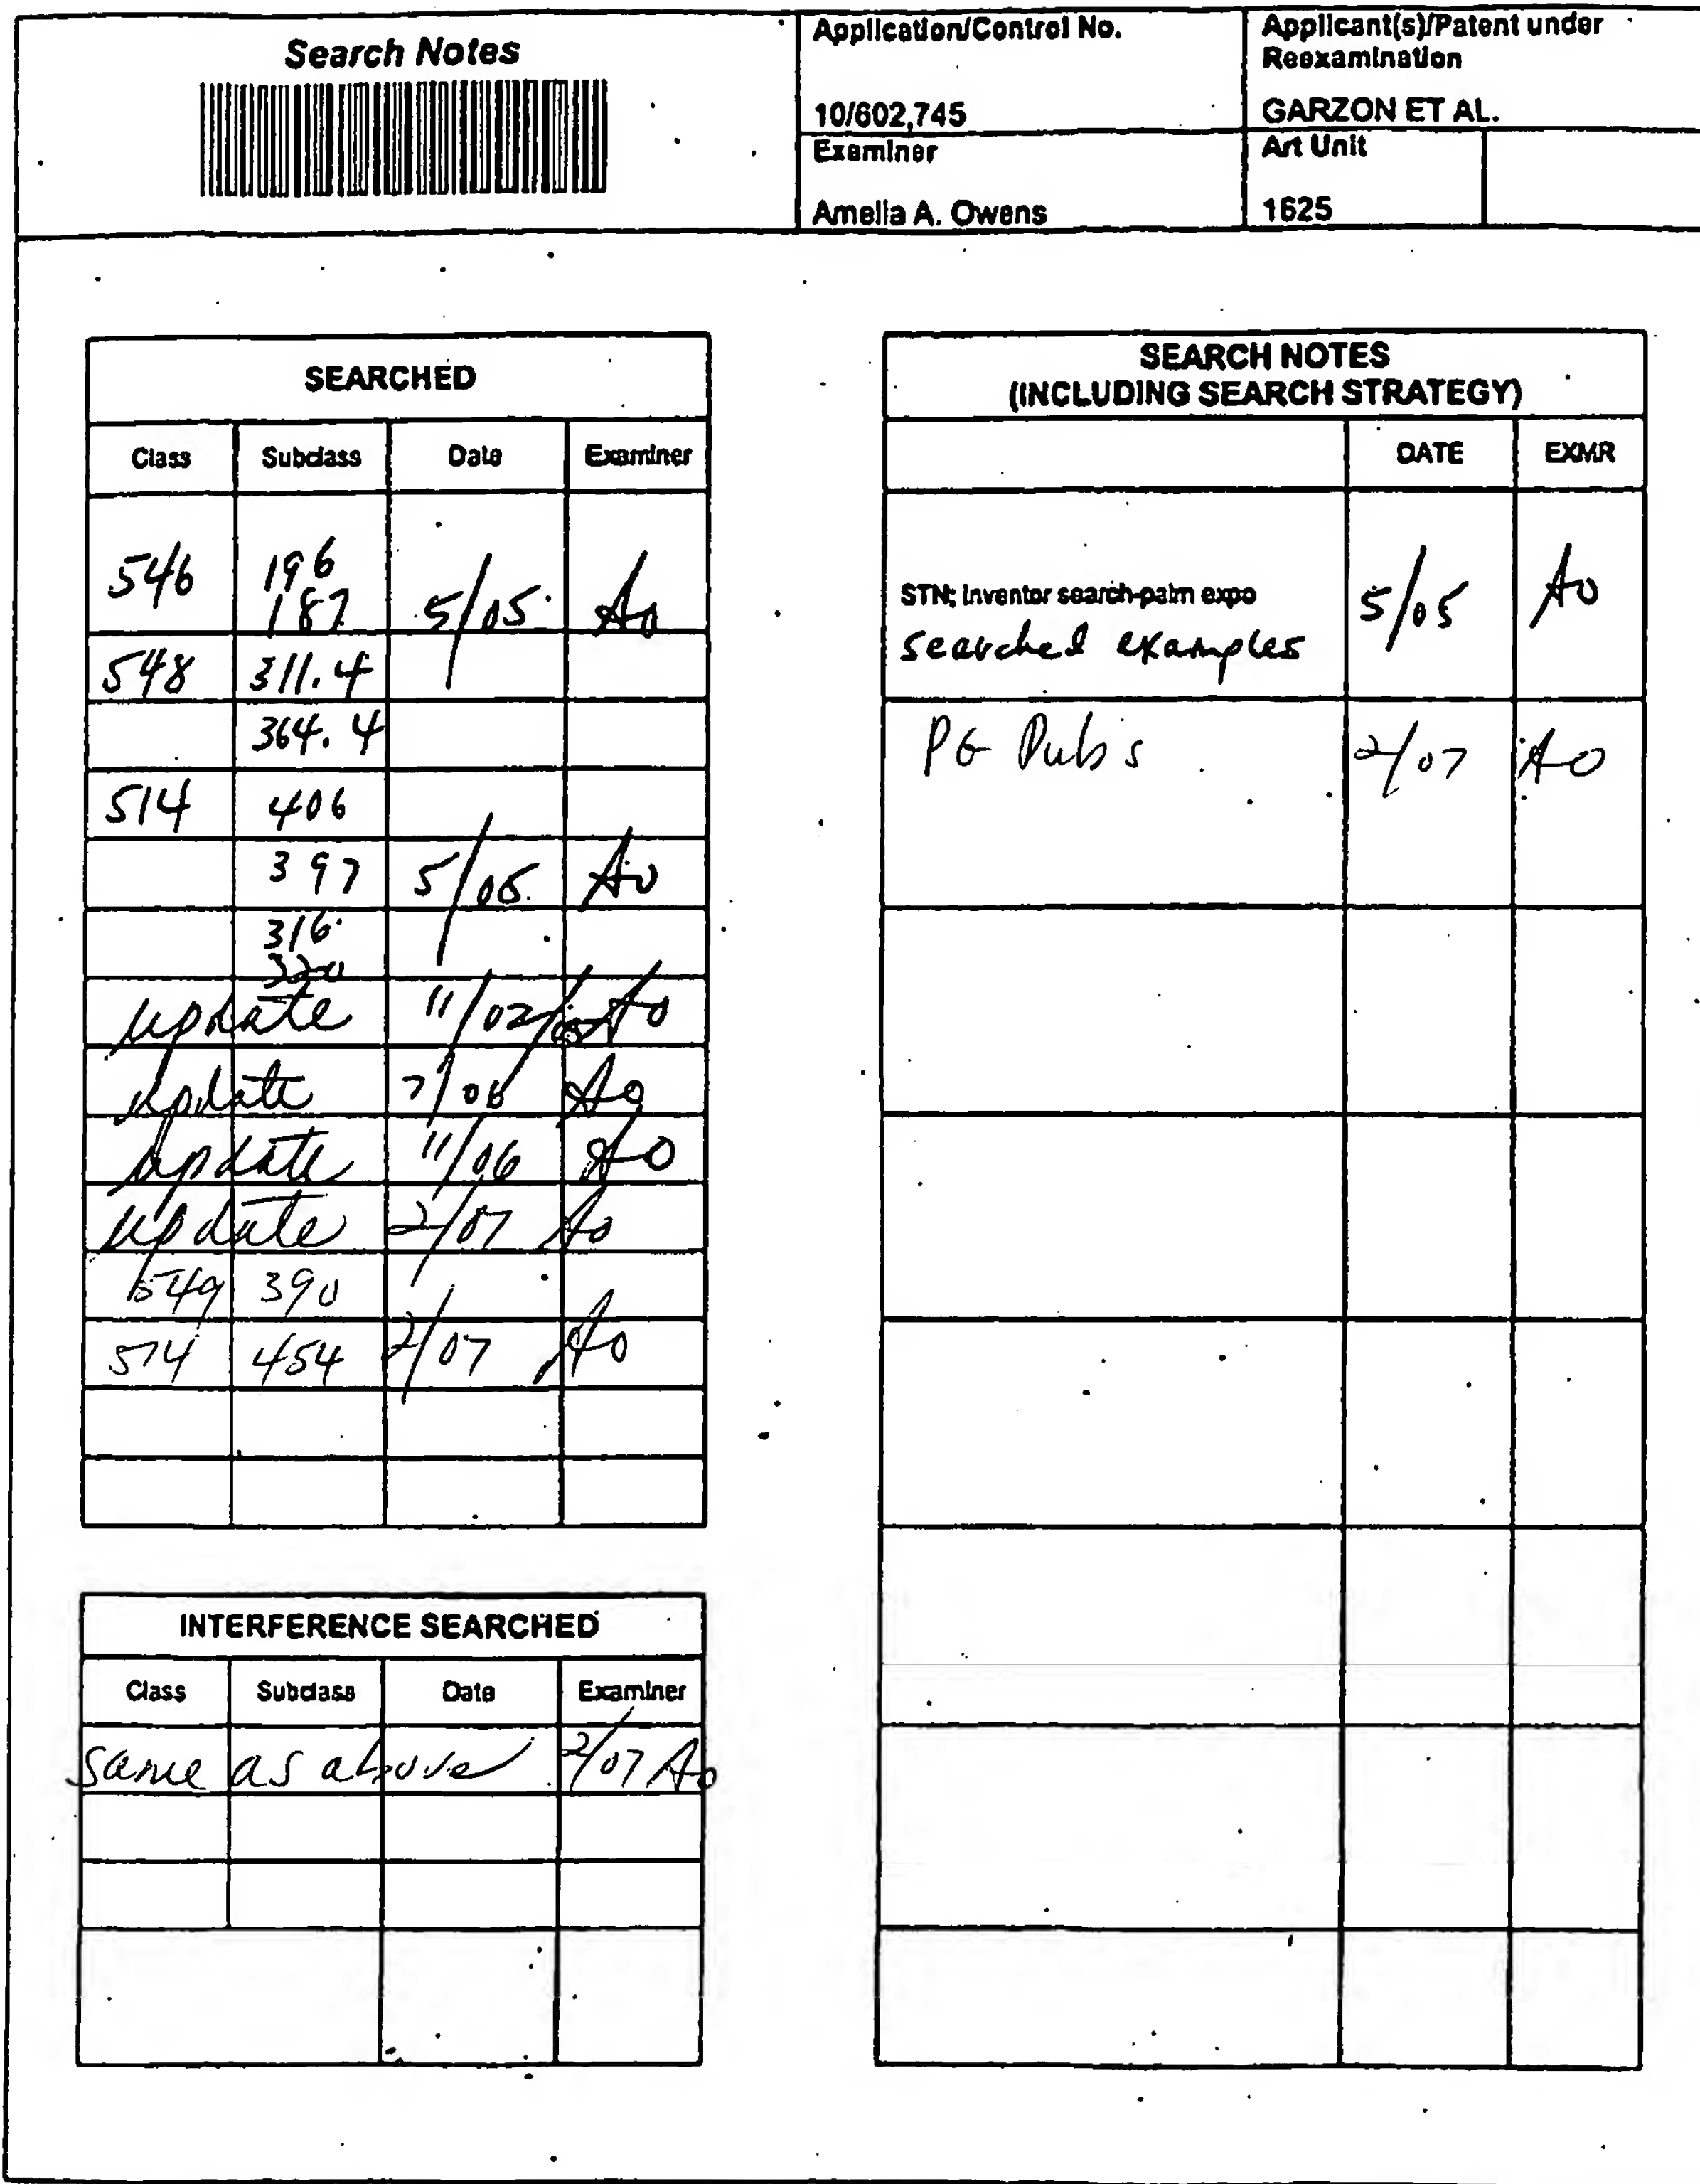 Search Notes
Application/Control No.
10/602,745
Applicant(s)/Patent under
Reexamination
GARZON ET AL.
Examiner
Amelia A. Owens
Art Unit
1625
SEARCHED
Class Subclass Date Examiner
546 196
187 5/05 AO
548 311.4
364.4
514 406
397 5/05 AO
316
320
update 11/02/05 AO
update 7/06 AO
update 11/06 AO
update 2/07 AO
549 390
514 454 2/07 AO
INTERFERENCE SEARCHED
Class Subclass Date Examiner
same as above 2/07 AO
SEARCH NOTES
(INCLUDING SEARCH STRATEGY)
DATE EXMR
STN; inventor search-palm expo
searched examples 5/05 AO
PG Pubs 2/07 AO